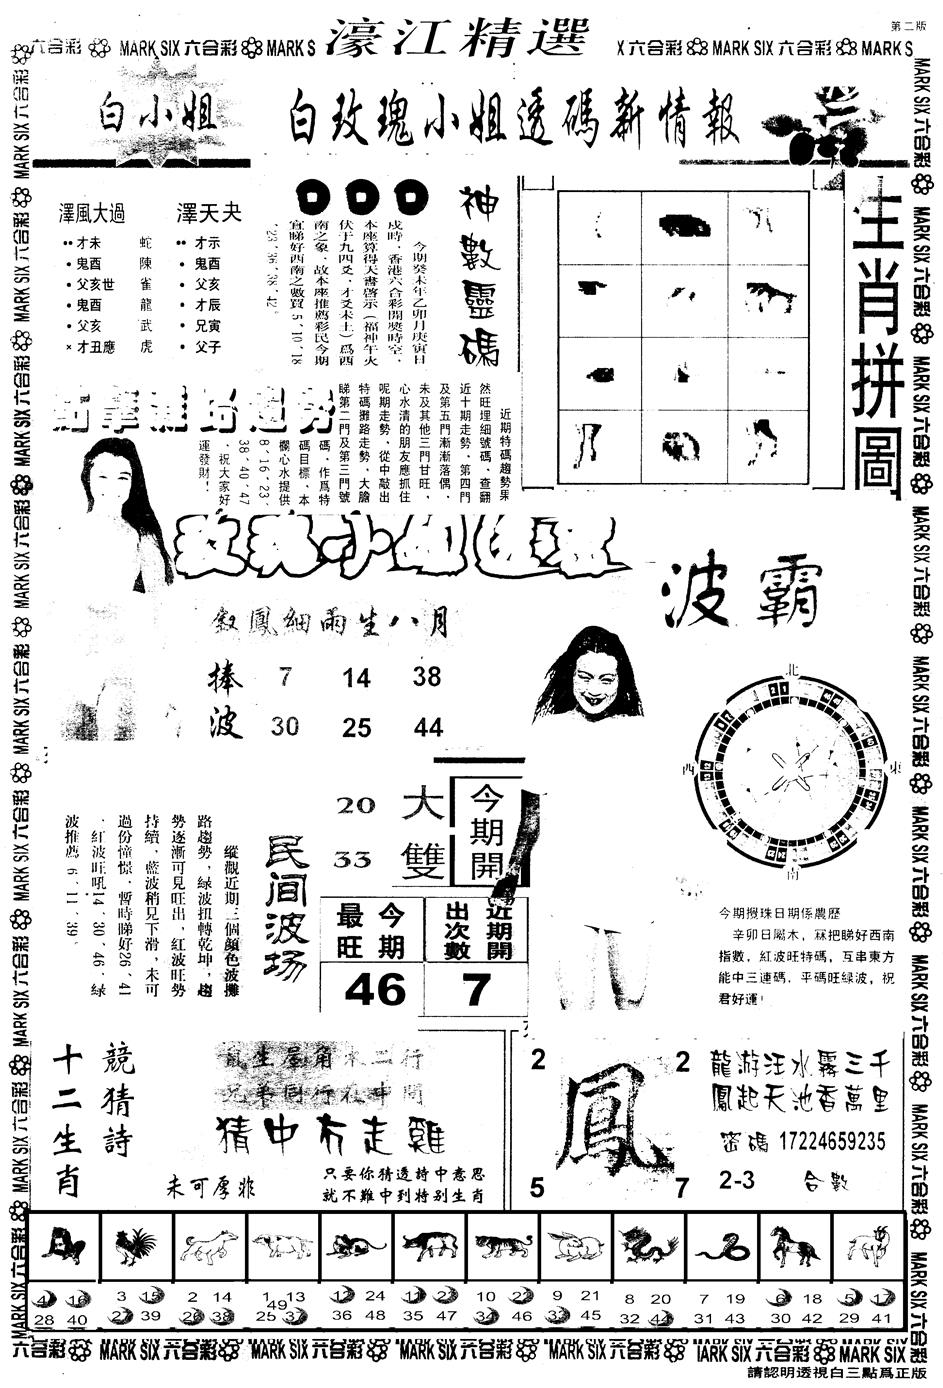 第二版
濠江精選
六合彩 MARK SIX 六合彩 MARK S
X 六合彩 MARK SIX 六合彩 MARK S
白小姐
白玫瑰小姐透碼新情報
澤風大過
澤天夬
才未 蛇 才示
鬼酉 陳 鬼酉
父亥世 雀 父亥
鬼酉 龍 才辰
父亥 武 兄寅
× 才丑應 虎 父子
神數靈碼
今期癸未年乙卯月庚寅日
戍時﹐香港六合彩開獎時空﹐
本座算得天書啓示（福神午火
伏于九四爻﹐才爻未土）爲西
南之象﹐故本座推薦彩民今期
宜睇好西南之數買5﹑10﹑18
﹑23﹑36﹑38﹑42。
生肖拼圖
近期特碼趨勢果
然旺埋細號碼﹐查翻
近十期走勢﹐第四門
及第五門漸漸落偶﹐
未及其他三門甘旺﹐
心水清的朋友應抓住
呢期走勢﹐從中敲出
特碼攤路走勢﹐大膽
睇第二門及第三門號
碼﹐作爲特
碼目標﹐本
欄心水提供
8﹑16﹑23﹑
38﹑40﹑47
﹐祝大家好
運發財！
波霸
鳳細雨生八月
捧波
7 14 38
30 25 44
北
西 東
南
20 大
33 雙
今期開
民间波场
縱觀近期三個顔色波攤
路趨勢﹐緑波扭轉乾坤﹐趨
勢逐漸可見旺出﹐紅波旺勢
持續﹐藍波稍見下滑﹐未可
過份憧憬﹐暫時睇好26﹑41
﹐紅波旺吼14﹑30﹑46﹐緑
波推薦6﹑11﹑39。
今期最旺
46
近期開出次數
7
今期攪珠日期係農歷
辛卯日屬木，冧把睇好西南
指數，紅波旺特碼，互串東方
能中三連碼，平碼旺緑波，祝
君好運！
十二生肖
競猜詩
猜中冇走雞
未可厚非
只要你猜透詩中意思
就不難中到特别生肖
2 2
鳳
5 7
龍游汪水霧三千
鳳起天池香萬里
密碼 17224659235
2-3 合數
4 16 3 15 2 14 1 13 12 24 11 23 10 22 9 21 8 20 7 19 6 18 5 17
28 40 27 39 26 38 25 37 49 36 48 35 47 34 46 33 45 32 44 31 43 30 42 29 41
六合彩 MARK SIX 六合彩 MARK SIX 六合彩 MARK SIX 六合彩 MARK SIX 六合彩 IARK SIX 六合彩 MARK SIX
請認明透視白三點爲正版